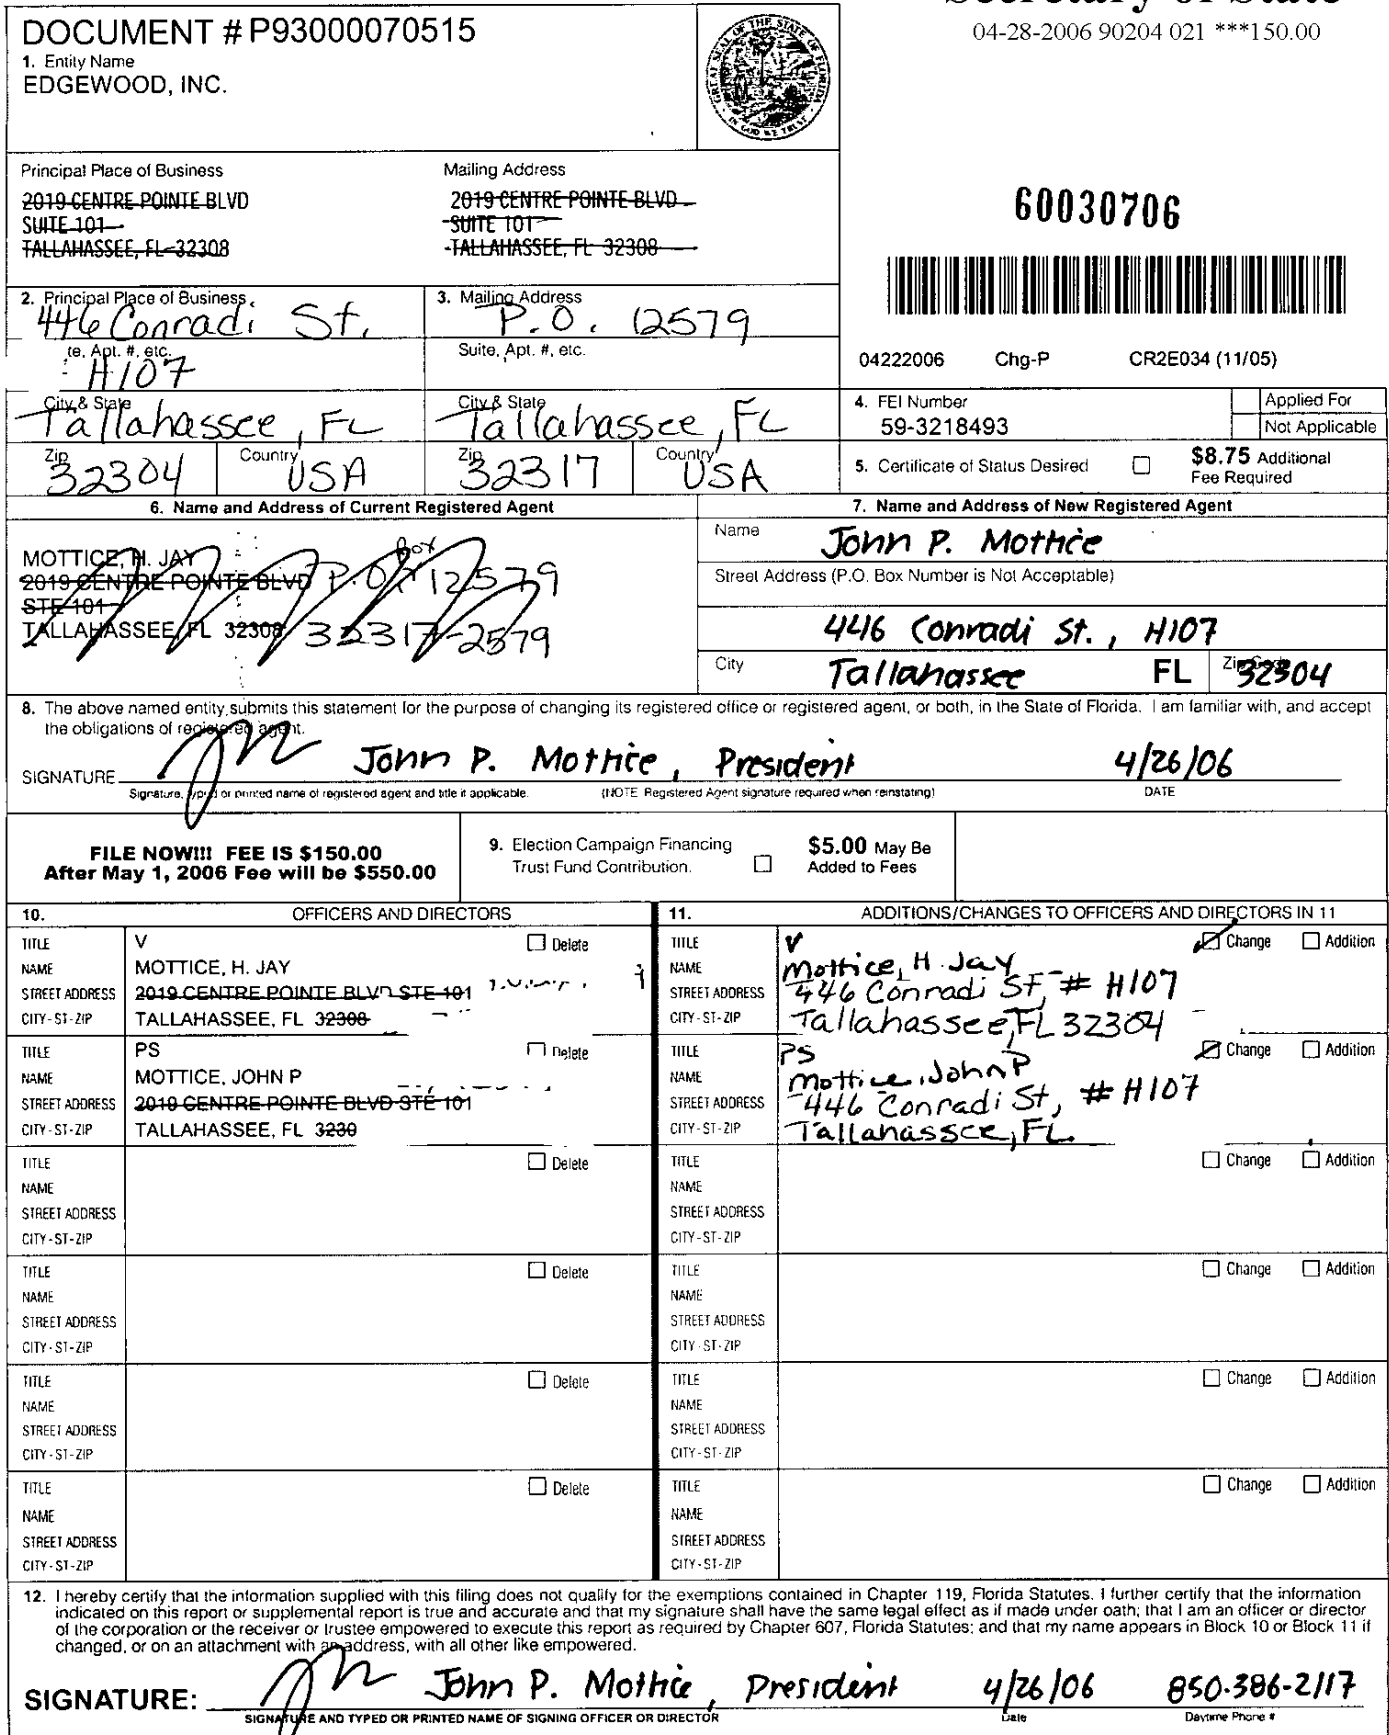 Secretary of State
DOCUMENT # P93000070515
04-28-2006 90204 021 ***150.00
1. Entity Name
EDGEWOOD, INC.
GREAT SEAL OF THE STATE OF FLORIDA
IN GOD WE TRUST
Principal Place of Business
Mailing Address
2019 CENTRE POINTE BLVD
SUITE 101
TALLAHASSEE, FL 32308
2019 CENTRE POINTE BLVD
SUITE 101
TALLAHASSEE, FL 32308
60030706
2. Principal Place of Business
446 Conradi St.
3. Mailing Address
P.O. 12579
te, Apt. #, etc.
H107
Suite, Apt. #, etc.
04222006 Chg-P CR2E034 (11/05)
City & State
Tallahassee, FL
City & State
Tallahassee, FL
Zip
32304
Country
USA
Zip
32317
Country
USA
4. FEI Number
59-3218493
Applied For
Not Applicable
5. Certificate of Status Desired
$8.75 Additional
Fee Required
6. Name and Address of Current Registered Agent
MOTTICE, H. JAY
2019 CENTRE POINTE BLVD P.O. Box 12579
STE 101
TALLAHASSEE, FL 32308 32317-2579
7. Name and Address of New Registered Agent
Name John P. Mottice
Street Address (P.O. Box Number is Not Acceptable)
446 Conradi St., H107
City Tallahassee FL Zip Code 32304
8. The above named entity submits this statement for the purpose of changing its registered office or registered agent, or both, in the State of Florida. I am familiar with, and accept
the obligations of registered agent.
SIGNATURE John P. Mottice, President 4/26/06
Signature, typed or printed name of registered agent and title if applicable. (NOTE Registered Agent signature required when reinstating) DATE
FILE NOW!!! FEE IS $150.00
After May 1, 2006 Fee will be $550.00
9. Election Campaign Financing
Trust Fund Contribution.
$5.00 May Be
Added to Fees
10. OFFICERS AND DIRECTORS
TITLE V Delete
NAME MOTTICE, H. JAY
STREET ADDRESS 2019 CENTRE POINTE BLVD STE 101
CITY-ST-ZIP TALLAHASSEE, FL 32308
TITLE PS Delete
NAME MOTTICE, JOHN P
STREET ADDRESS 2019 CENTRE POINTE BLVD STE 101
CITY-ST-ZIP TALLAHASSEE, FL 3230
TITLE Delete
NAME
STREET ADDRESS
CITY-ST-ZIP
TITLE Delete
NAME
STREET ADDRESS
CITY-ST-ZIP
TITLE Delete
NAME
STREET ADDRESS
CITY-ST-ZIP
TITLE Delete
NAME
STREET ADDRESS
CITY-ST-ZIP
11. ADDITIONS/CHANGES TO OFFICERS AND DIRECTORS IN 11
TITLE V Change Addition
NAME Mottice, H. Jay
STREET ADDRESS 446 Conradi St, # H107
CITY-ST-ZIP Tallahassee, FL 32304
TITLE PS Change Addition
NAME Mottice, John P
STREET ADDRESS 446 Conradi St, # H107
CITY-ST-ZIP Tallahassee, FL.
TITLE Change Addition
NAME
STREET ADDRESS
CITY-ST-ZIP
TITLE Change Addition
NAME
STREET ADDRESS
CITY-ST-ZIP
TITLE Change Addition
NAME
STREET ADDRESS
CITY-ST-ZIP
TITLE Change Addition
NAME
STREET ADDRESS
CITY-ST-ZIP
12. I hereby certify that the information supplied with this filing does not qualify for the exemptions contained in Chapter 119, Florida Statutes. I further certify that the information
indicated on this report or supplemental report is true and accurate and that my signature shall have the same legal effect as if made under oath; that I am an officer or director
of the corporation or the receiver or trustee empowered to execute this report as required by Chapter 607, Florida Statutes; and that my name appears in Block 10 or Block 11 if
changed, or on an attachment with an address, with all other like empowered.
SIGNATURE: John P. Mottice, President 4/26/06 850-386-2117
SIGNATURE AND TYPED OR PRINTED NAME OF SIGNING OFFICER OR DIRECTOR Date Daytime Phone #